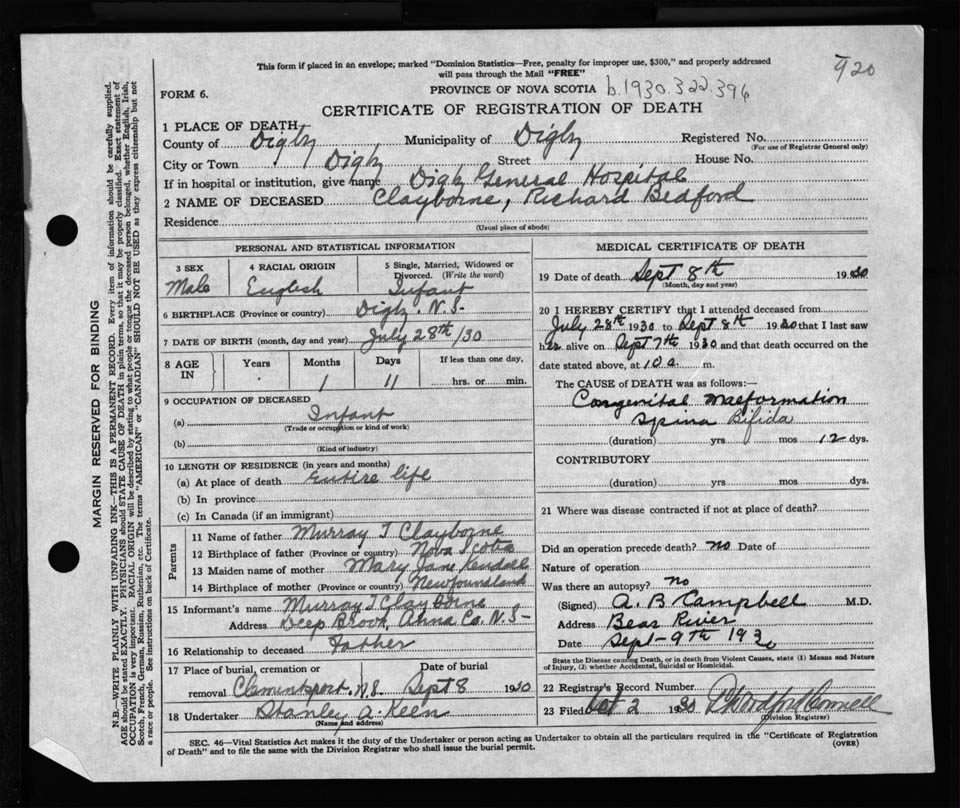 This form if placed in an envelope, marked "Dominion Statistics—Free, penalty for improper use, $300," and properly addressed
will pass through the Mail "FREE"
920
FORM 6.
PROVINCE OF NOVA SCOTIA b.1930.322.396
CERTIFICATE OF REGISTRATION OF DEATH
1 PLACE OF DEATH
County of Digby Municipality of Digby Registered No.
(For use of Registrar General only)
City or Town Digby Street House No.
If in hospital or institution, give name Digby General Hospital
2 NAME OF DECEASED Clayborne, Richard Bedford
Residence
(Usual place of abode)
PERSONAL AND STATISTICAL INFORMATION
3 SEX 4 RACIAL ORIGIN 5 Single, Married, Widowed or
Divorced. (Write the word)
Male English Infant
6 BIRTHPLACE (Province or country) Digby. N.S-
7 DATE OF BIRTH (month, day and year) July 28th/30
8 AGE IN Years Months Days If less than one day,
1 11 hrs. or min.
9 OCCUPATION OF DECEASED
(a) Infant
(Trade or occupation or kind of work)
(b)
(Kind of industry)
10 LENGTH OF RESIDENCE (in years and months)
(a) At place of death Entire life
(b) In province
(c) In Canada (if an immigrant)
Parents
11 Name of father Murray T Clayborne
12 Birthplace of father (Province or country) Nova Scotia
13 Maiden name of mother Mary Jane Kendall
14 Birthplace of mother (Province or country) Newfoundland
15 Informant's name Murray T Clayborne
Address Deep Brook, Anna Co. N.S-
16 Relationship to deceased Father
17 Place of burial, cremation or Date of burial
removal Clementsport. N.S. Sept 8 1930
18 Undertaker Stanley A. Keen
(Name and address)
MEDICAL CERTIFICATE OF DEATH
19 Date of death Sept 8th 1930
(Month, day and year)
20 I HEREBY CERTIFY that I attended deceased from
July 28th 1930 to Sept 8th 1930 that I last saw
h alive on Sept 7th 1930 and that death occurred on the
date stated above, at 10 a. m.
The CAUSE of DEATH was as follows:—
Congenital malformation
Spina Bifida
(duration) yrs mos 12 dys.
CONTRIBUTORY
(duration) yrs mos dys.
21 Where was disease contracted if not at place of death?
Did an operation precede death? no Date of
Nature of operation
Was there an autopsy? no
(Signed) A. B Campbell M.D.
Address Bear River
Date Sept-9th 193
State the Disease causing Death, or in death from Violent Causes, state (1) Means and Nature
of Injury, (2) whether Accidental, Suicidal or Homicidal.
22 Registrar's Record Number
23 Filed Oct 2 1930
(Division Registrar)
SEC. 46—Vital Statistics Act makes it the duty of the Undertaker or person acting as Undertaker to obtain all the particulars required in the "Certificate of Registration
of Death" and to file the same with the Division Registrar who shall issue the burial permit.
(OVER)
MARGIN RESERVED FOR BINDING
N.B.—WRITE PLAINLY WITH UNFADING INK—THIS IS A PERMANENT RECORD. Every item of information should be carefully supplied.
AGE should be stated EXACTLY. PHYSICIANS should STATE CAUSE OF DEATH in plain terms, so that it may be properly classified. Exact statement of
OCCUPATION is very important. RACIAL ORIGIN will be described by stating to what people or tongue the deceased person belonged, whether English, Irish,
Scotch, French, German, Russian, Ruthenian, etc. The terms "AMERICAN" or "CANADIAN" SHOULD NOT BE USED as they express citizenship but not
a race or people. See instructions on back of Certificate.